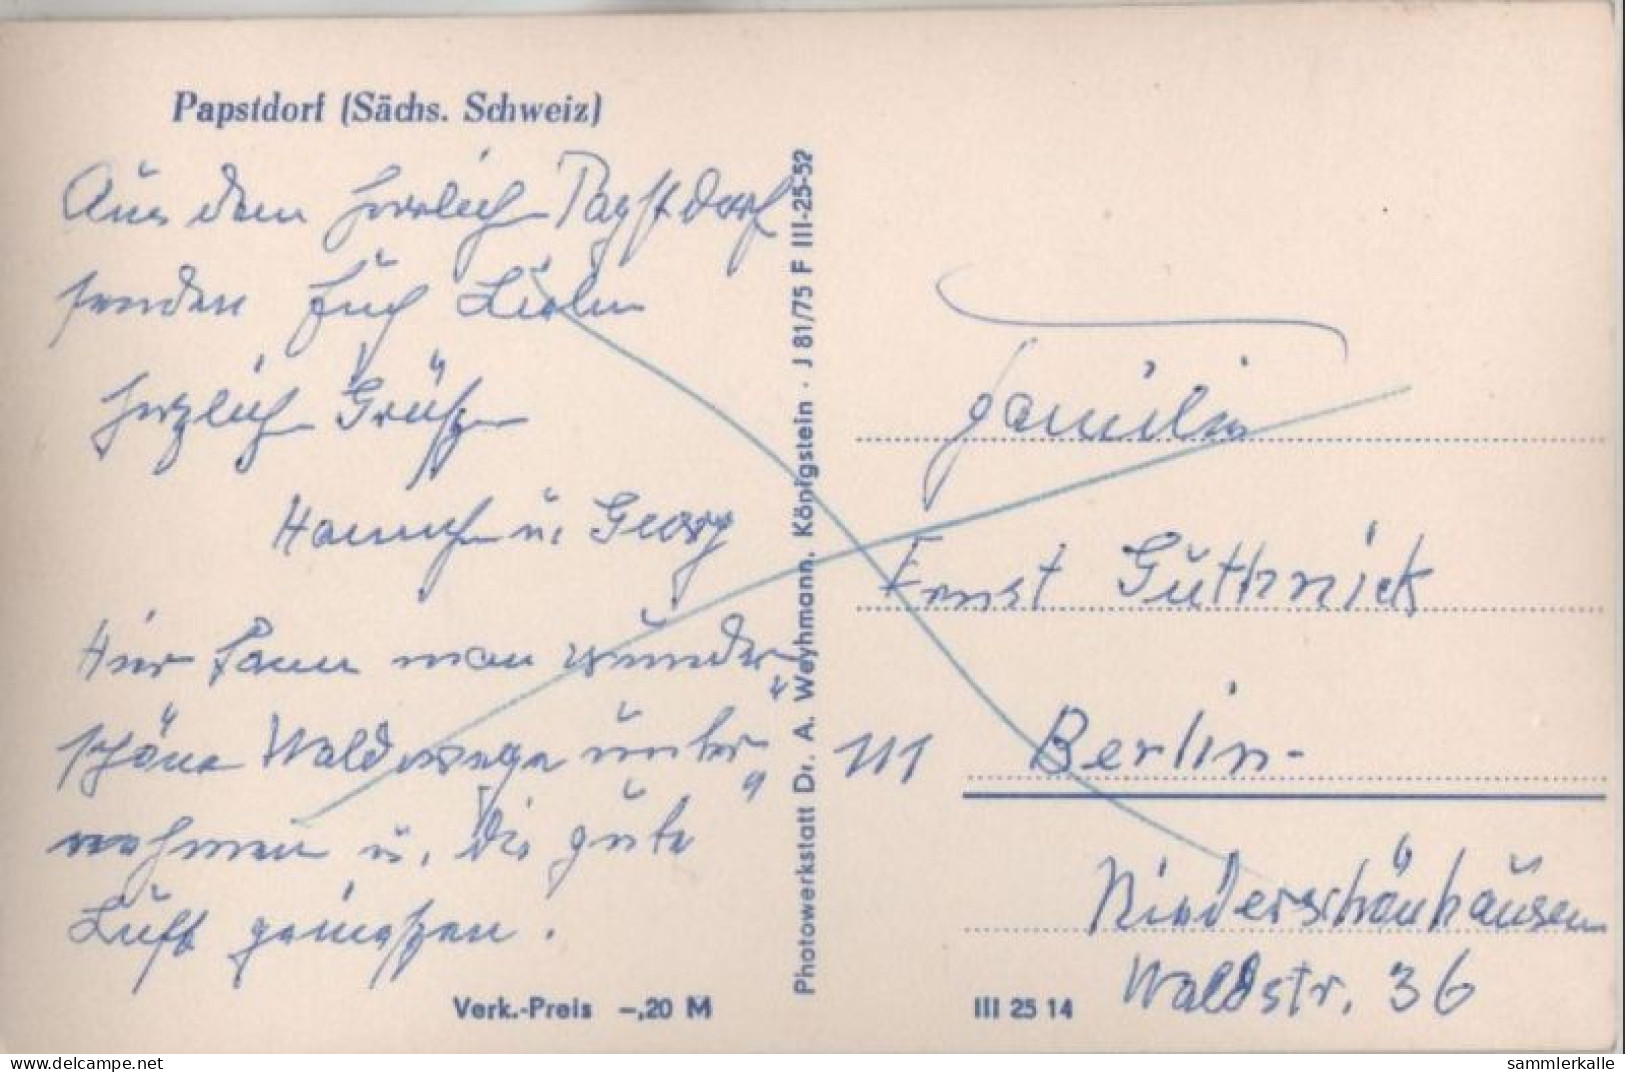 Papstdorf (Sächs. Schweiz)
Aus dem herrlich Papstdorf
senden Euch Lieben
herzlich Grüße
u. Georg
Hier kann man wunder
schöne Waldwege unter
nehmen u. die gute
Luft genießen.
Verk.-Preis -,20 M
Photowerkstatt Dr. A. Weyhmann, Königstein · J 81/75 F III-25-52
Familie
Ernst Guthnick
111 Berlin-
Niederschönhausen
Waldstr. 36
III 25 14
https://www.delcampe.net
sammlerkalle